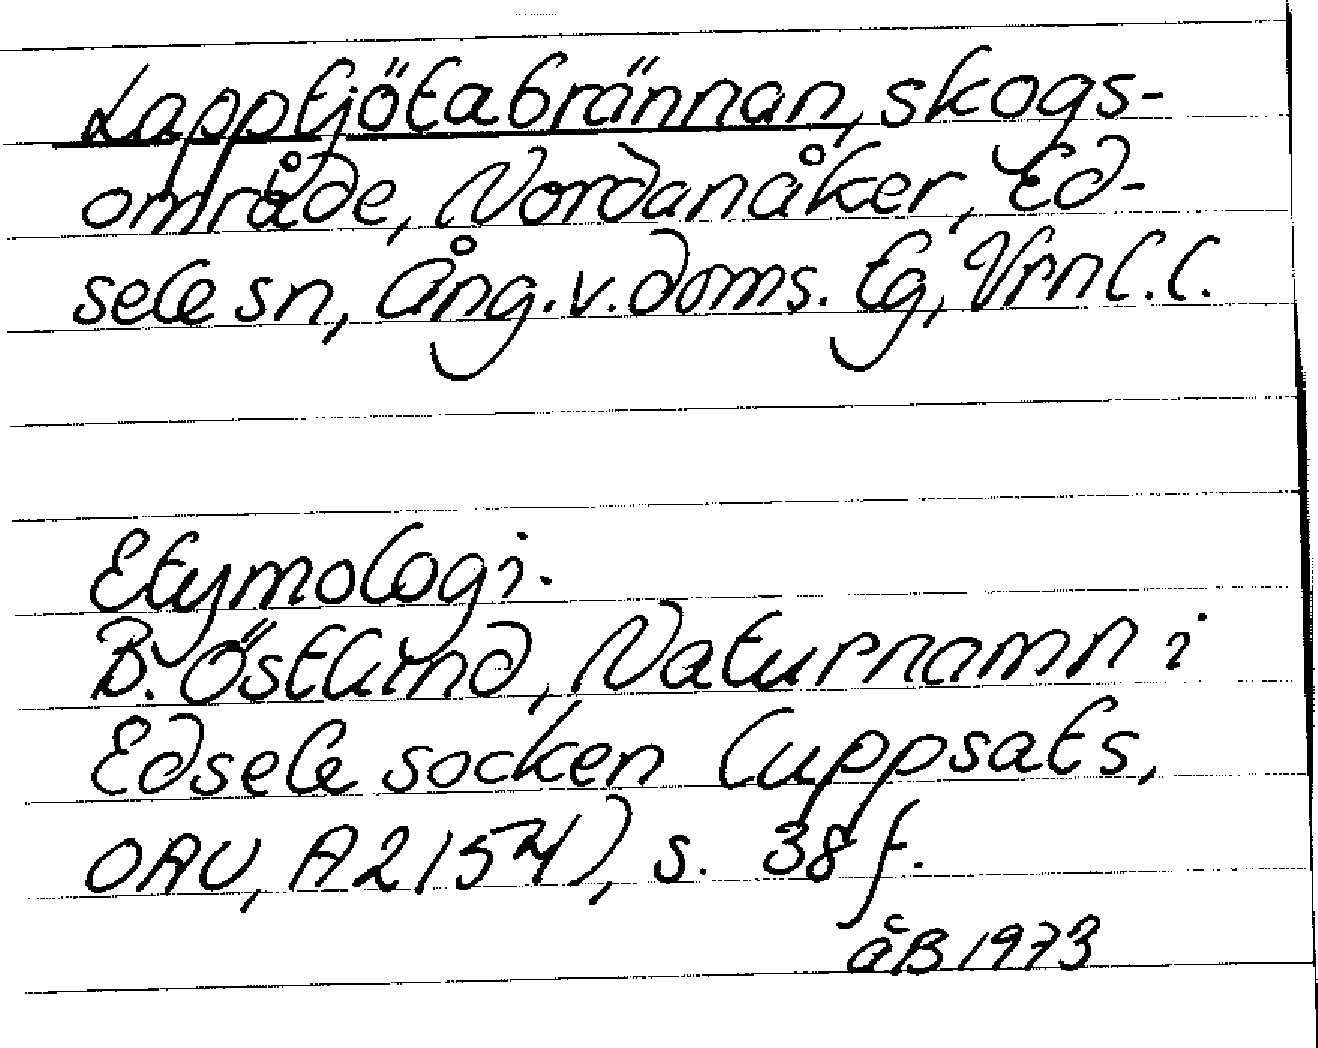 Lapptjötabrännan, skogs-
område, Nordanåker, Ed-
sele sn, Ång. v. doms. tg, Vrnl. l.
Etymologi.
B. Östlund, Naturnamn i
Edsele socken (uppsats,
OAU, A2154), s. 38 f.
åB 1973